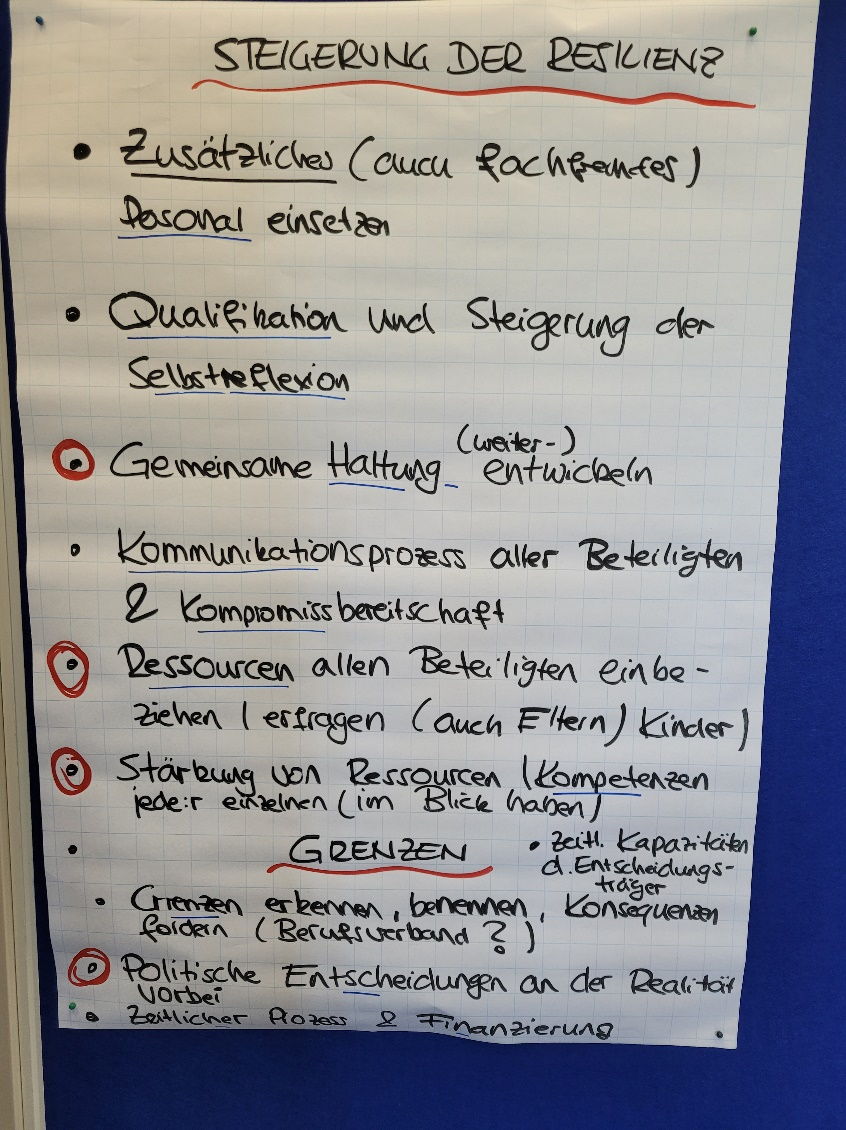 STEIGERUNG DER RESILIENZ
• Zusätzliches (auch fachfremdes)
Personal einsetzen
• Qualifikation und Steigerung der
Selbstreflexion
(weiter-)
• Gemeinsame Haltung entwickeln
• Kommunikationsprozess aller Beteiligten
& Kompromissbereitschaft
• Ressourcen allen Beteiligten einbe-
ziehen / erfragen (auch Eltern / Kinder)
• Stärkung von Ressourcen / Kompetenzen
jede:r einzelnen (im Blick haben)
• GRENZEN
• zeitl. Kapazitäten
d. Entscheidungs-
träger
• Grenzen erkennen, benennen, Konsequenzen
fordern (Berufsverband?)
• Politische Entscheidungen an der Realität
vorbei
• Zeitlicher Prozess & Finanzierung